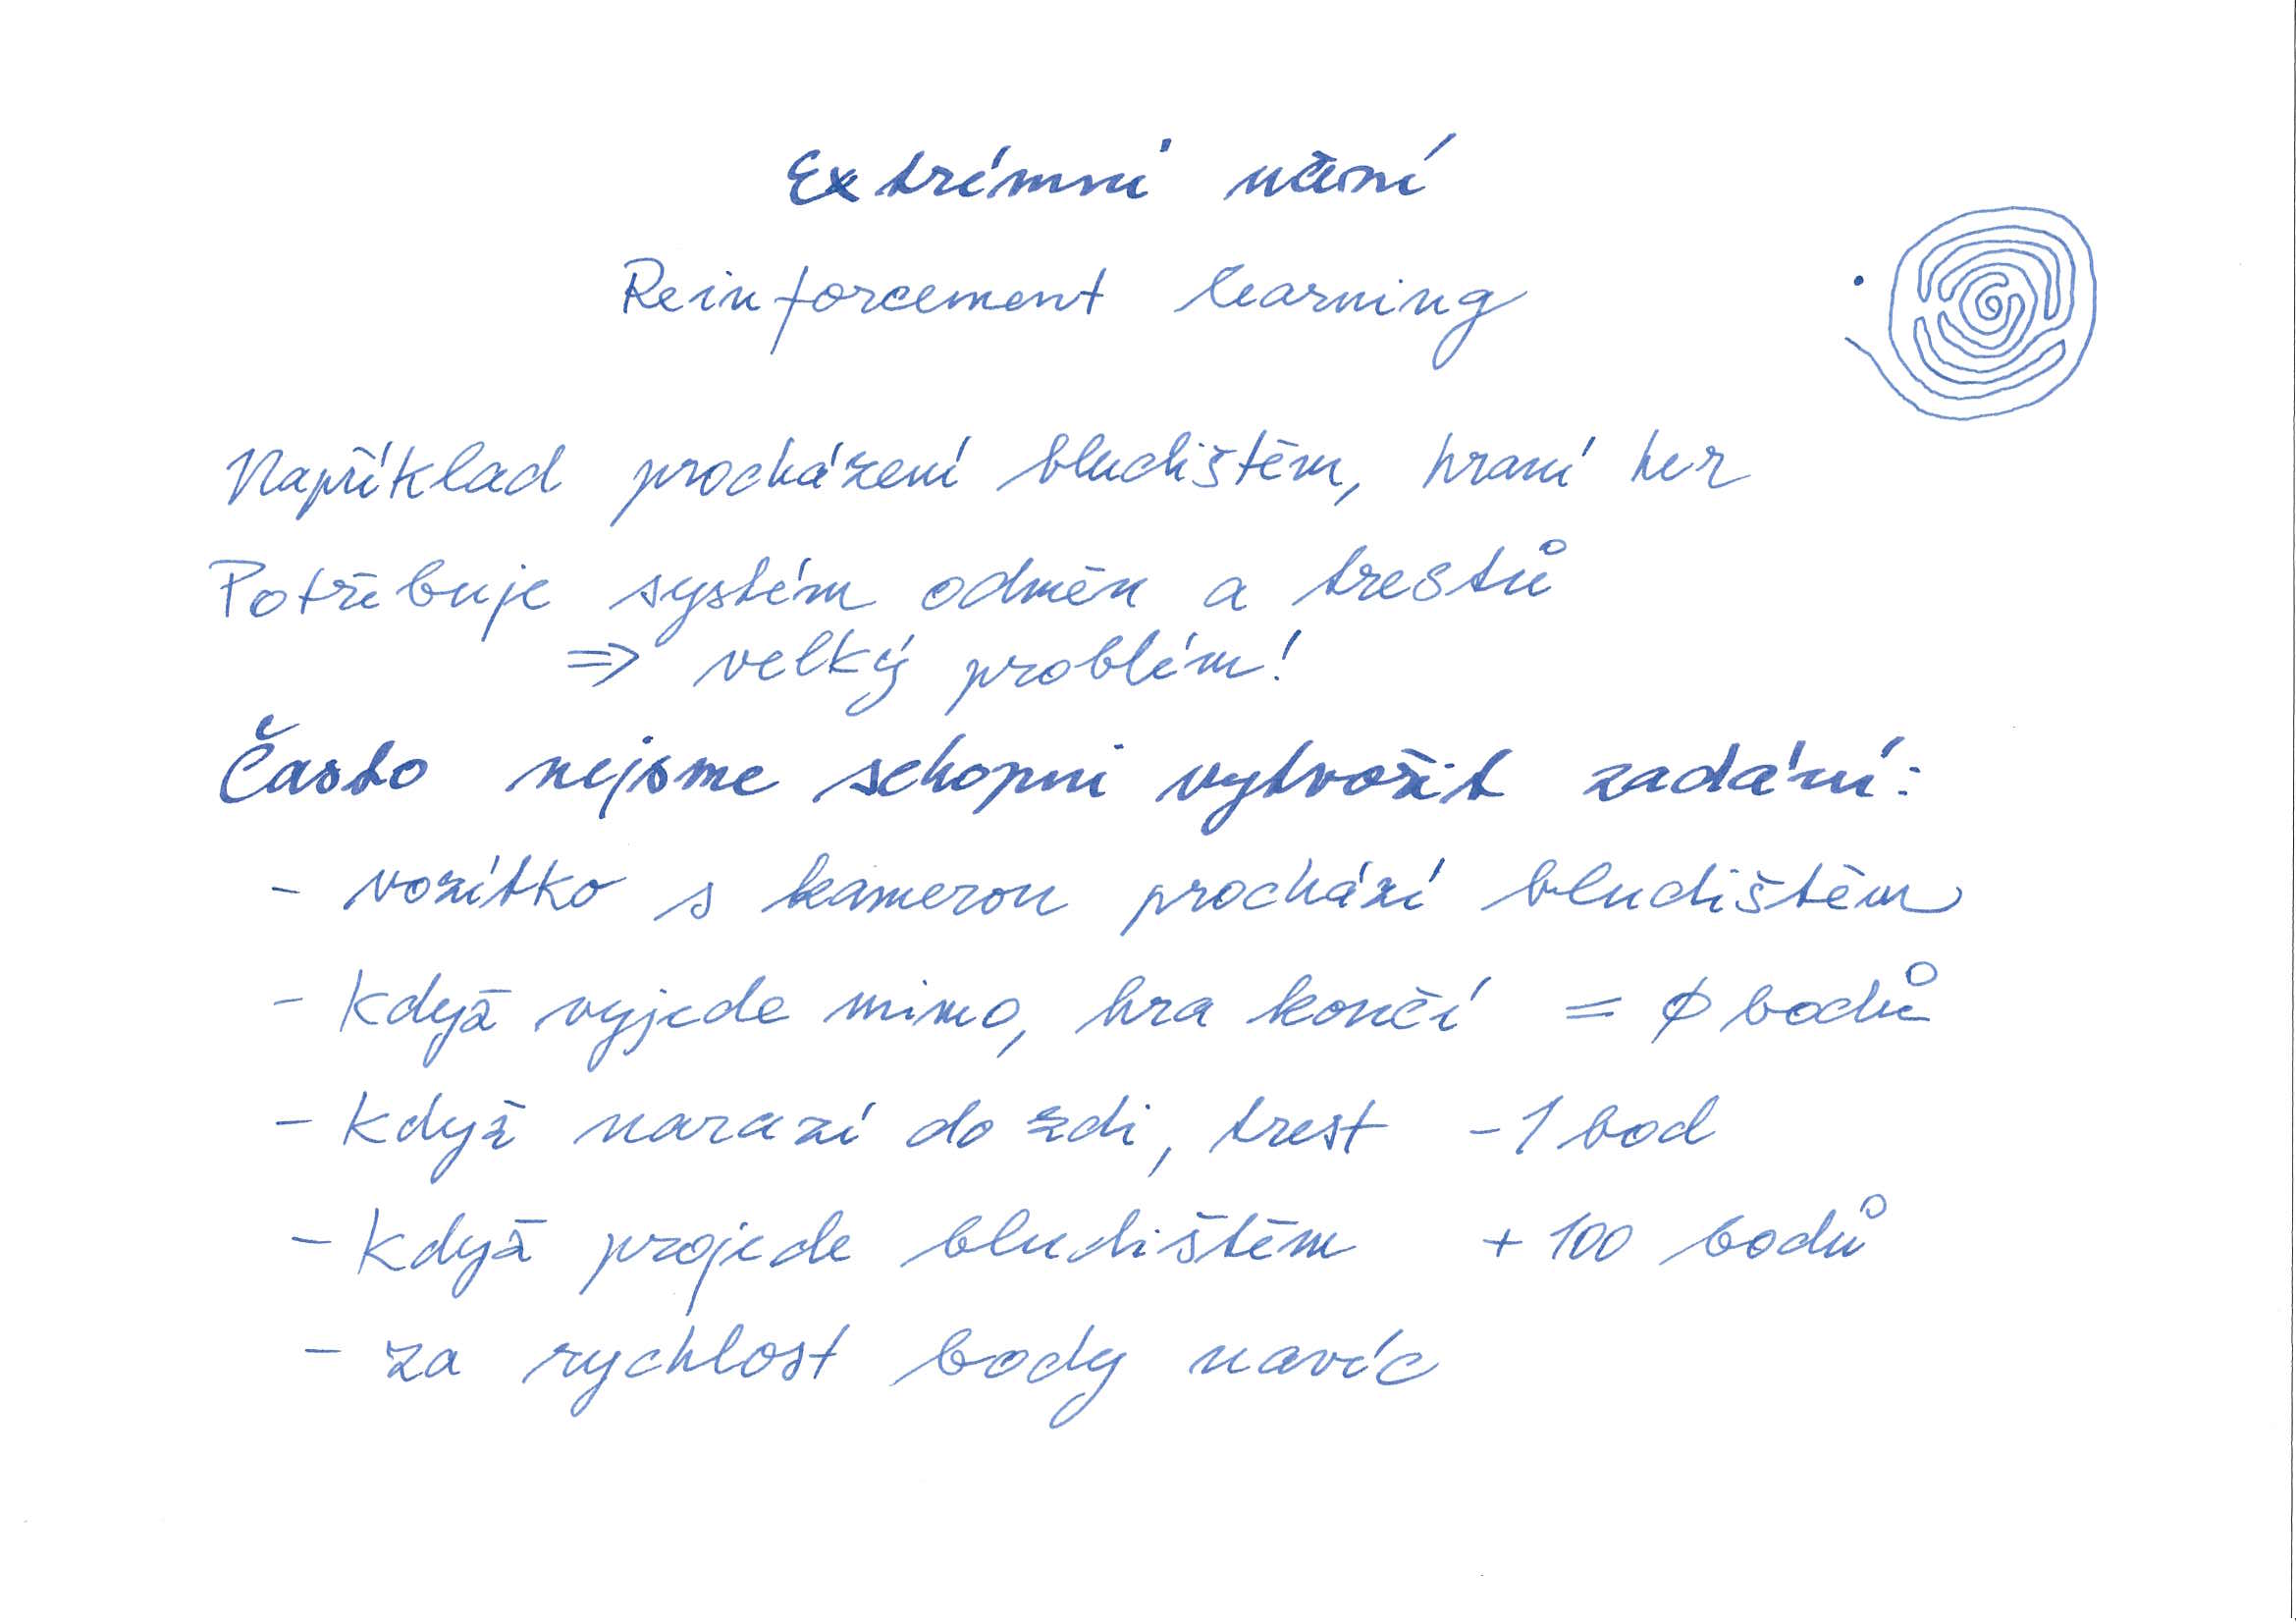 Extrémní učení
Reinforcement learning
Například procházení bludištěm, hraní her
Potřebuje systém odměn a trestů
⇒ velký problém!
Často nejsme schopni vytvořit zadání:
- vozítko s kamerou prochází bludištěm
- když vyjede mimo, hra končí = ∅ bodů
- když narazí do zdi, trest -1 bod
- když projede bludištěm + 100 bodů
- za rychlost body navíc